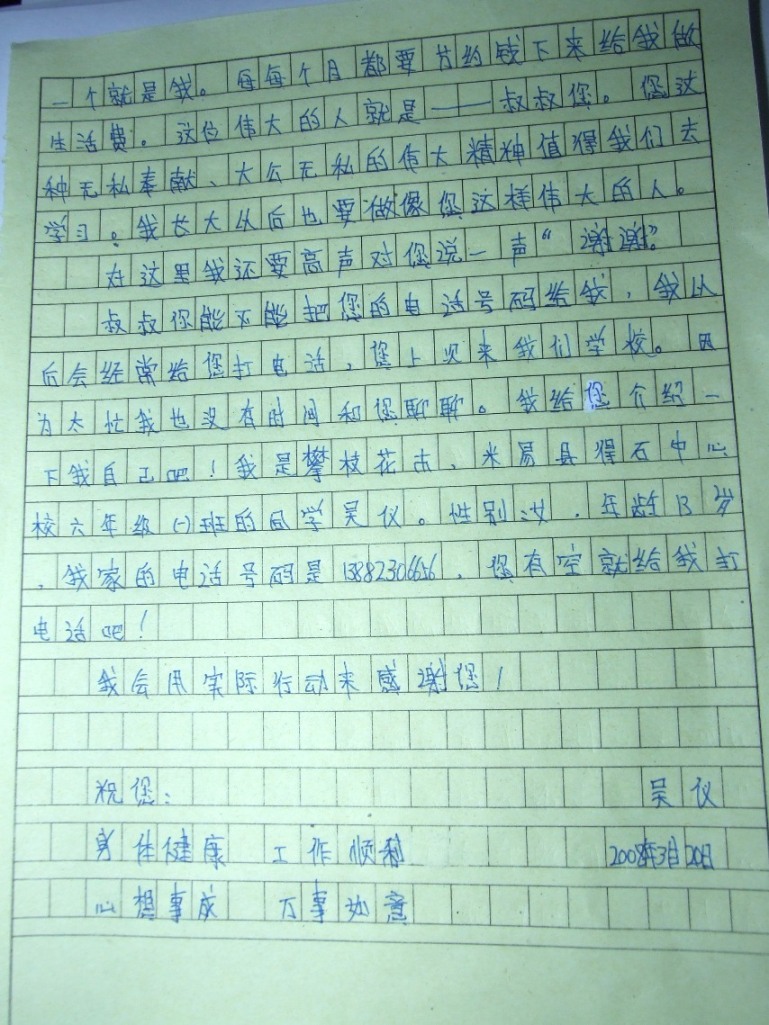 一个就是我。每每个月都要节约钱下来给我做
生活费。这位伟大的人就是——叔叔您。您这
种无私奉献、大公无私的伟大精神值得我们去
学习。我长大以后也要做像您这样伟大的人。
在这里我还要高声对您说一声“谢谢”。
叔叔你能不能把您的电话号码给我,我以
后会经常给您打电话,您上次来我们学校。因
为太忙我也没有时间和您聊聊。我给您介绍一
下我自己吧!我是攀枝花市、米易县得石中心
校六年级(一)班的同学吴仪。性别女.年龄13岁
.我家的电话号码是13882306656.您有空就给我打
电话吧!
我会用实际行动来感谢您!
祝您: 吴仪
身体健康 工作顺利 2008年3月20日
心想事成 万事如意